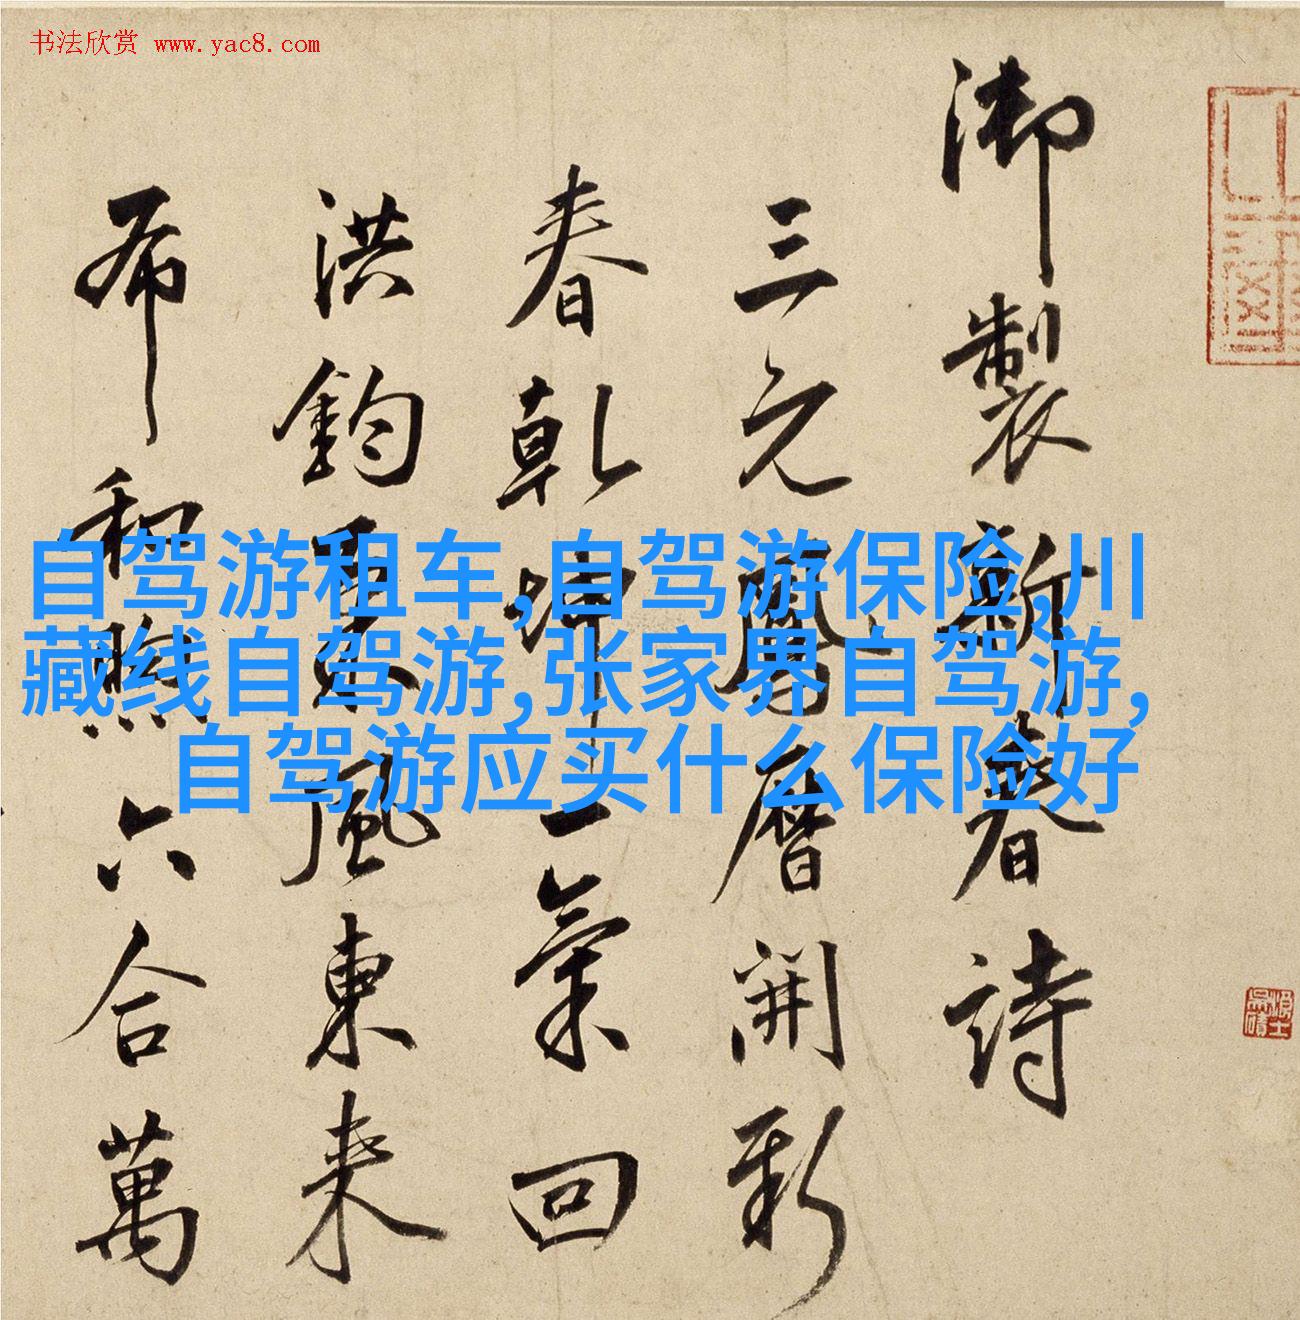 书法欣赏 www.yac8.com
御製新春詩
三元鳳曆開新
春乾坤一氣回
洪鈞風東来
布和煦六合萬
自驾游租车,自驾游保险,川
藏线自驾游,张家界自驾游,
自驾游应买什么保险好